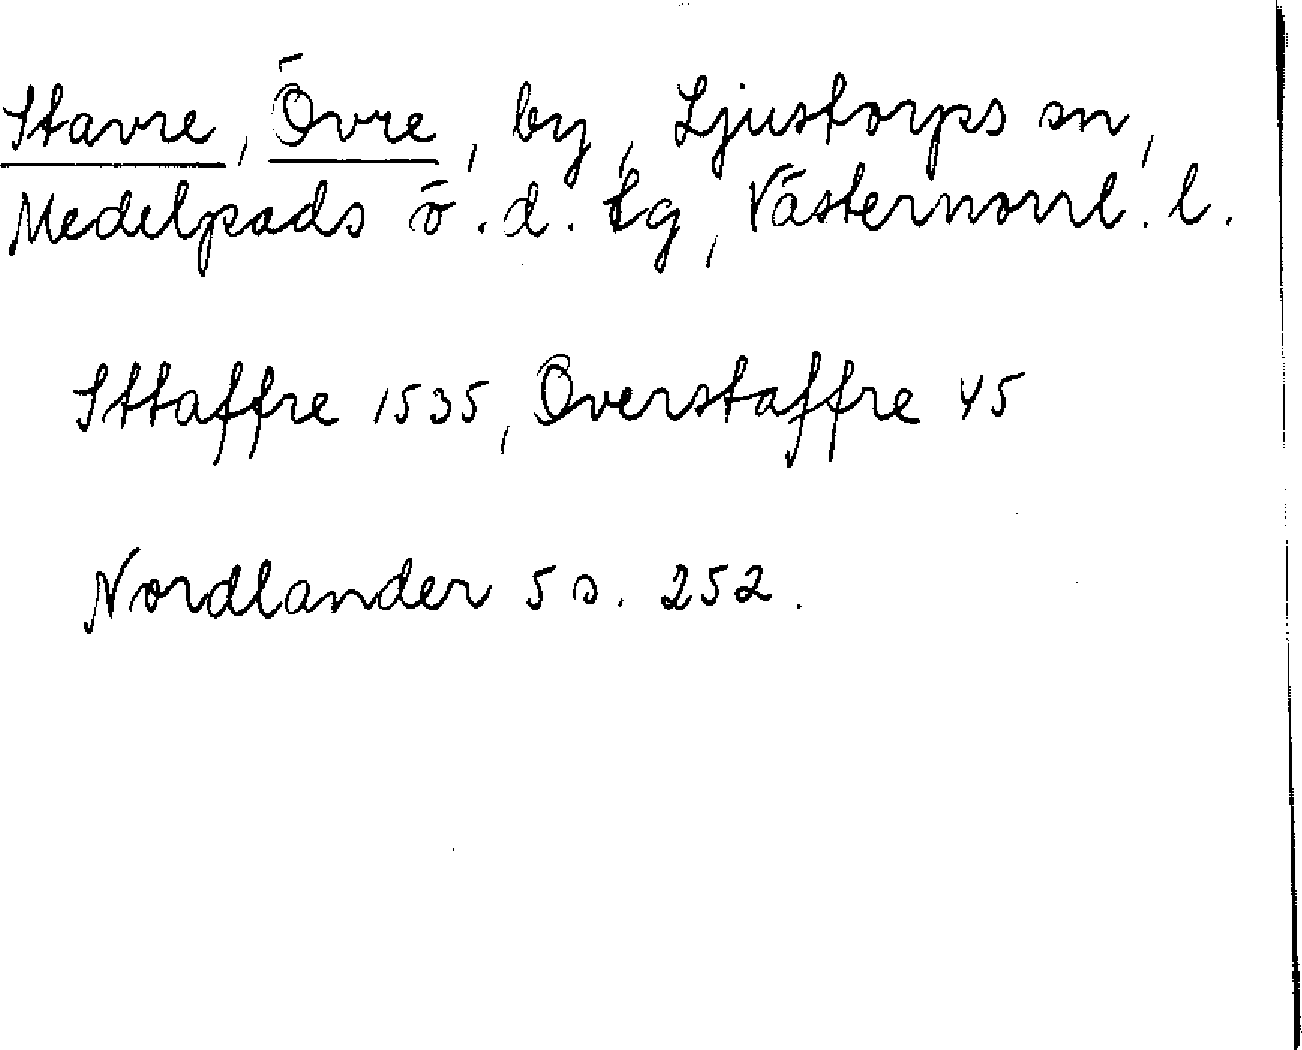 Stavre, Övre, by, Ljustorps sn,
Medelpads ö. d. tg, Västernorrl. l.
Sttaffre 1535, Överstaffre 45
Nordlander 5 s. 252.